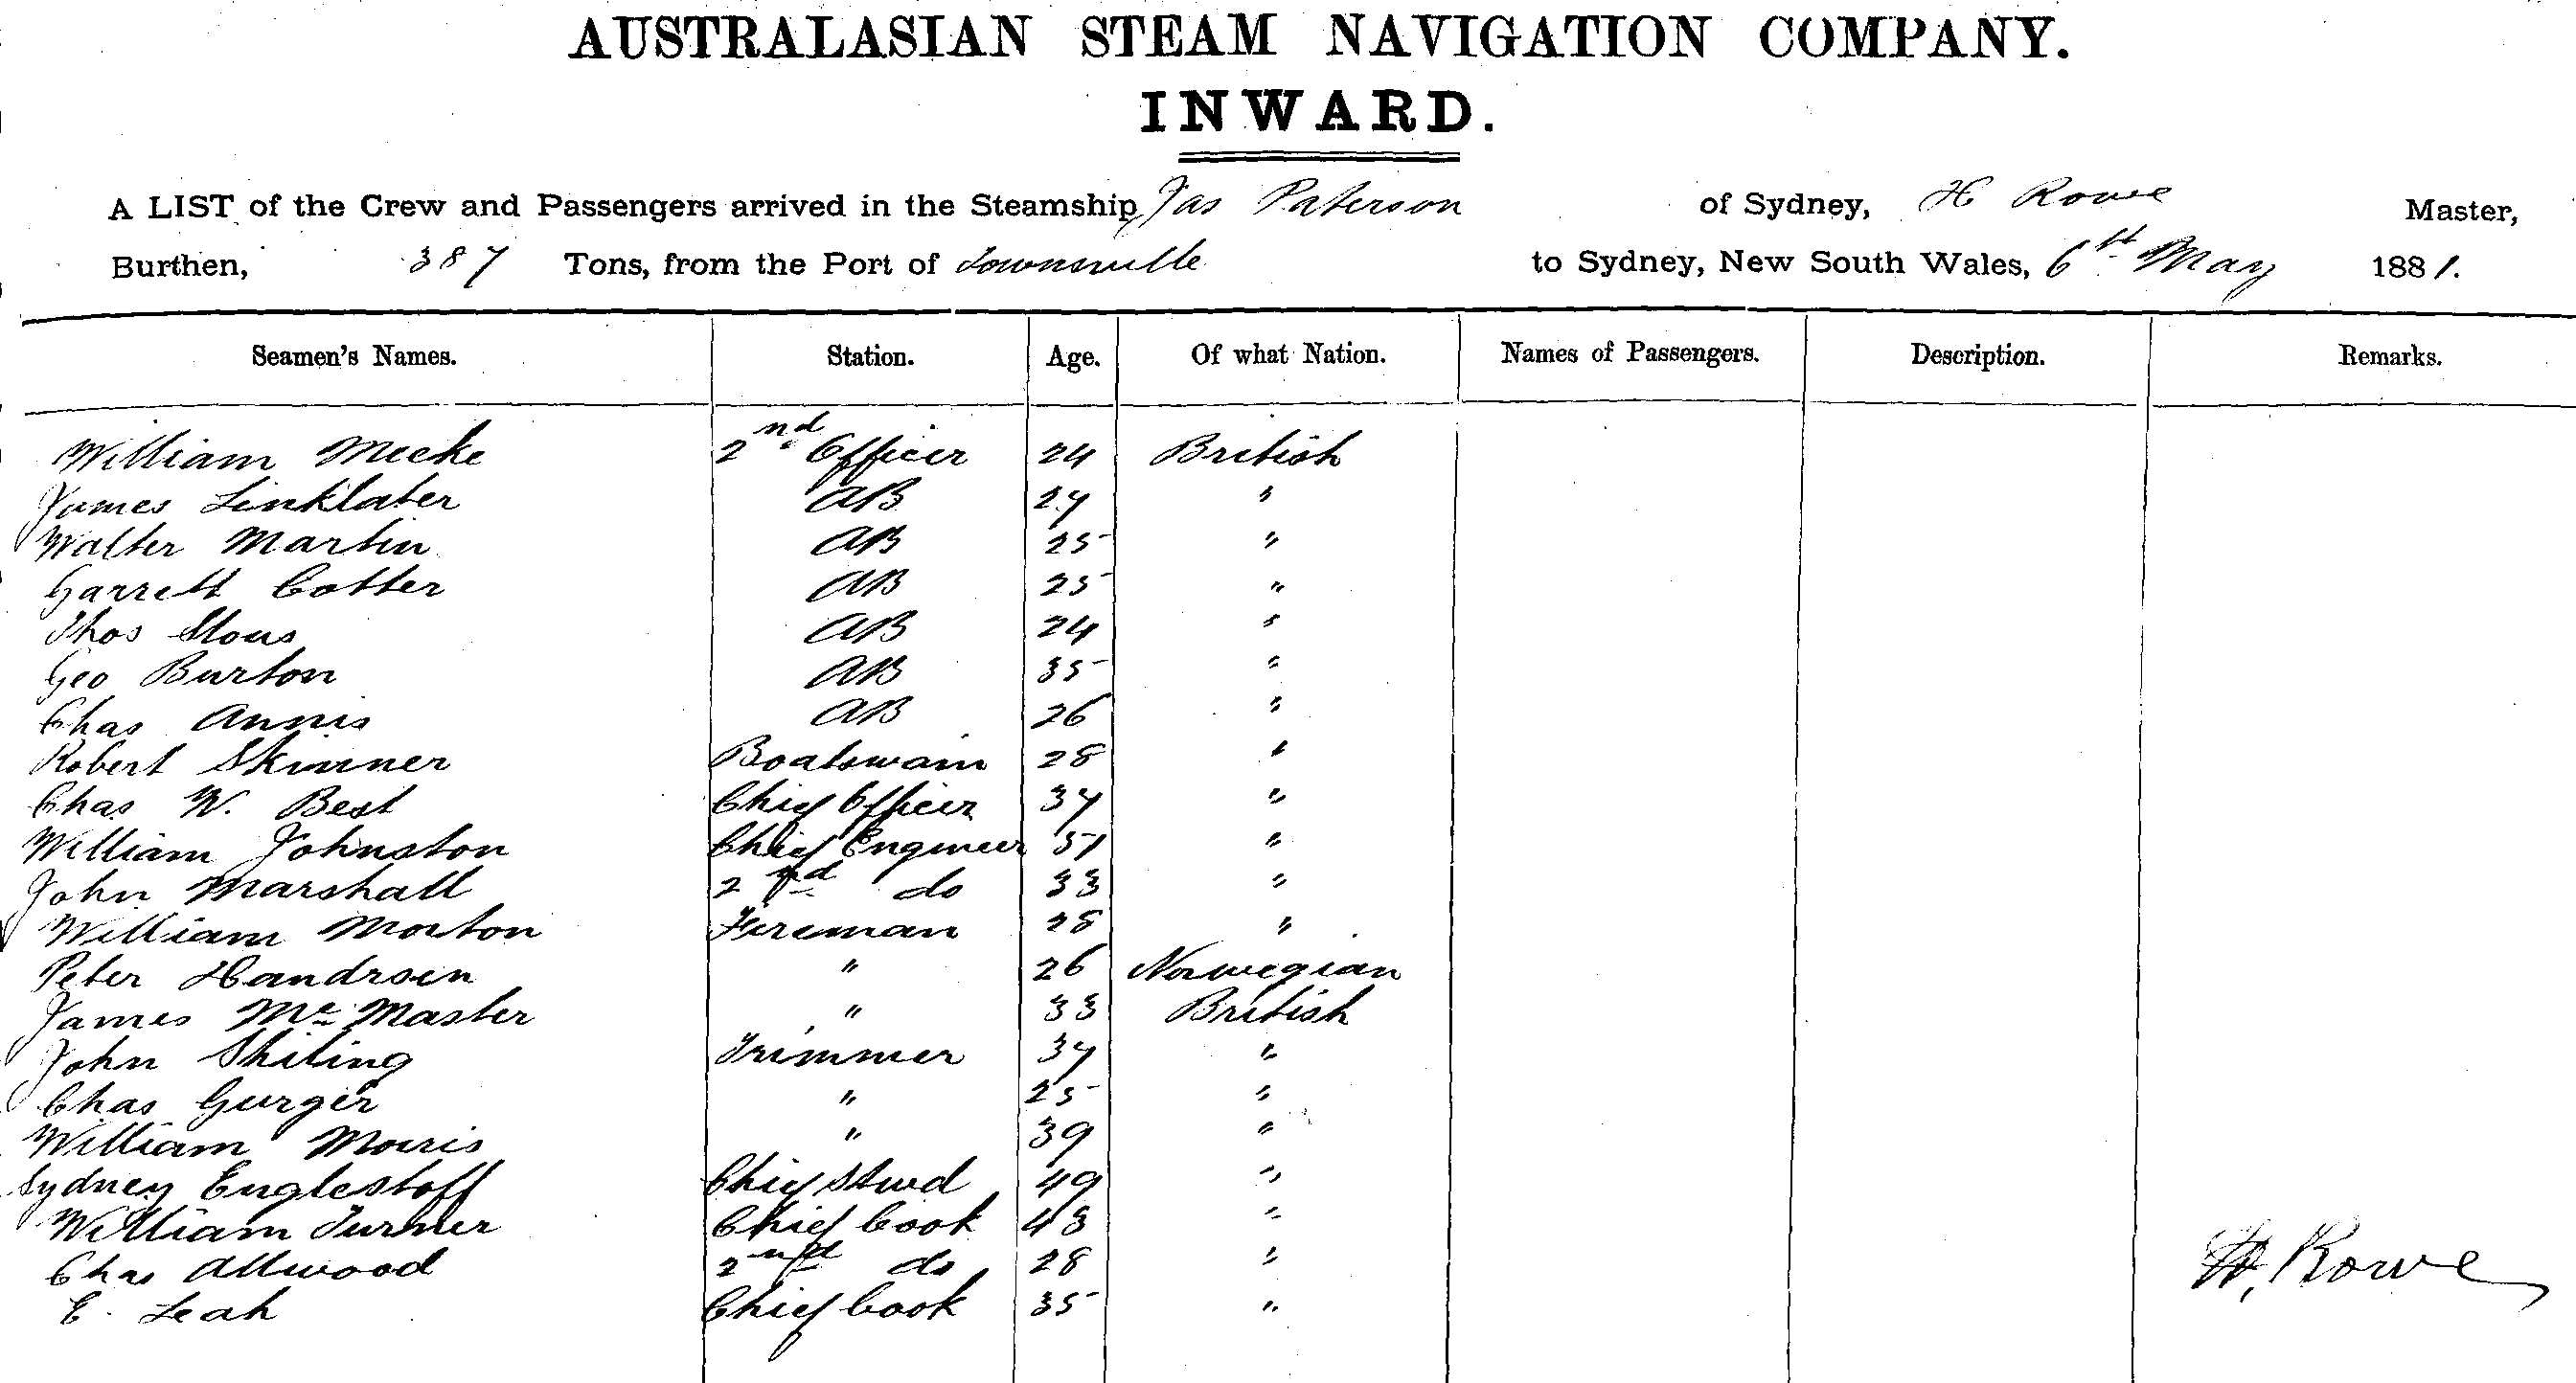 AUSTRALASIAN STEAM NAVIGATION COMPANY.
INWARD.
A LIST of the Crew and Passengers arrived in the Steamship Jas Paterson of Sydney, H Rowe Master,
Burthen, 387 Tons, from the Port of Townsville to Sydney, New South Wales, 6th May 1881.
Seamen's Names. Station. Age. Of what Nation. Names of Passengers. Description. Remarks.
William Meeke 2nd Officer 24 British
James Linklater AB 27 "
Walter Martin AB 25 "
Garrett Cotter AB 25 "
Thos AB 24 "
Geo Burton AB 35 "
Chas Annis AB 26 "
Robert Skinner Boatswain 28 "
Chas W. Best Chief Officer 37 "
William Johnston Chief Engineer 51 "
John Marshall 2nd do 33 "
William Morton Fireman 28 "
Peter Handrsen " 26 Norwegian
James McMaster " 33 British
John Shiling Trimmer 37 "
Chas Gurger " 25 "
William Morris " 39 "
Sydney Englestoff Chief Stwd 49 "
William Turner Chief Cook 43 "
Chas Allwood 2nd do 28 "
E. Leah Chief Cook 35 "
H. Rowe